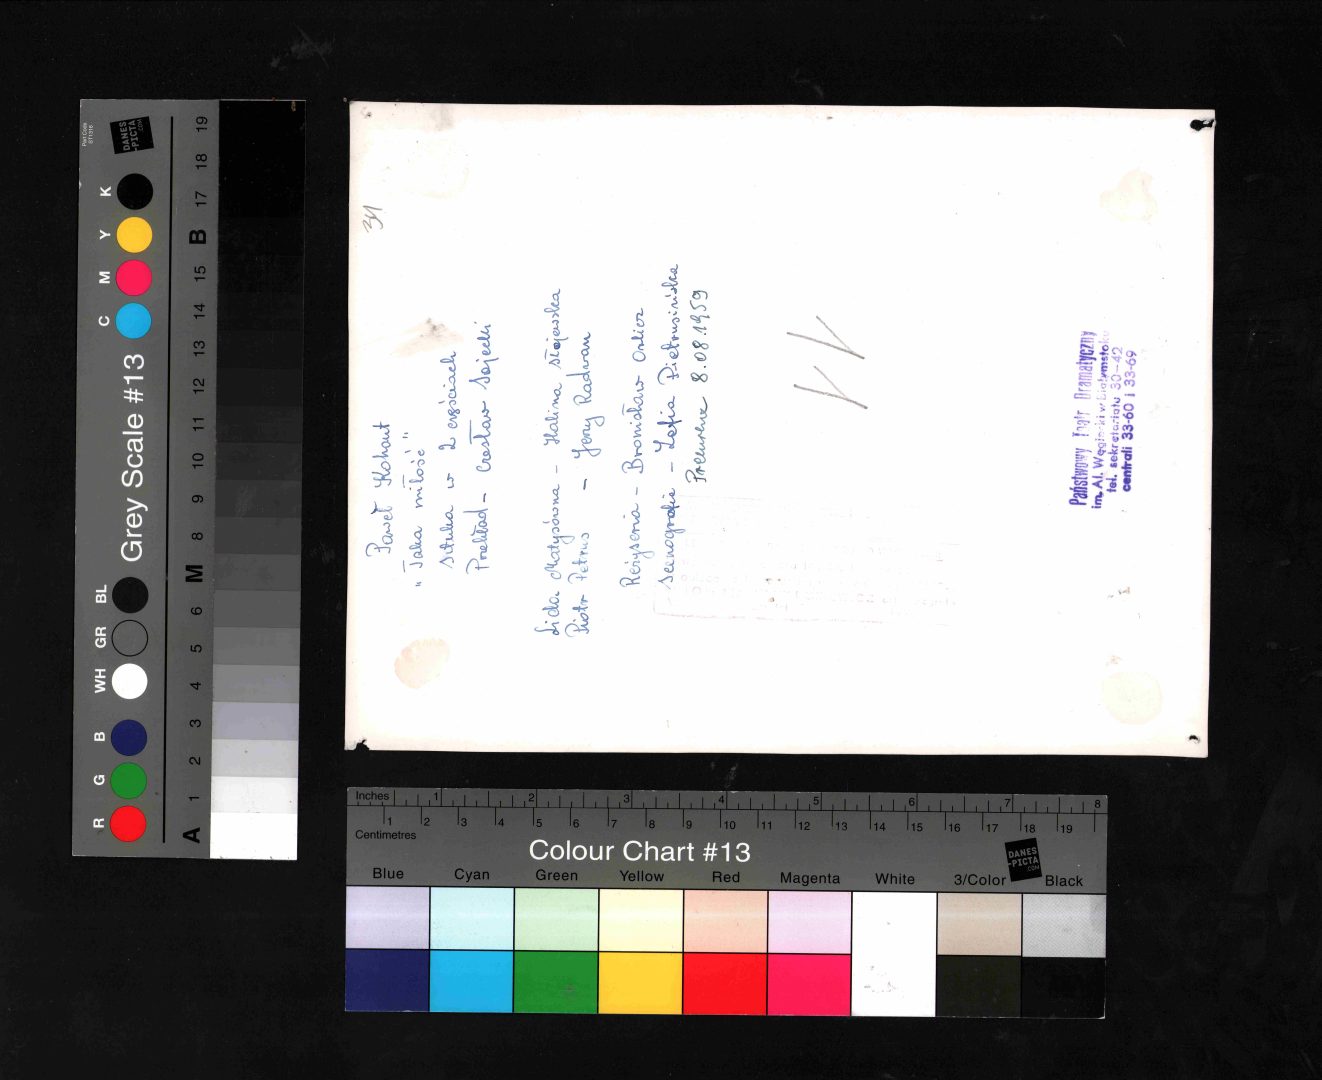 31
Paweł Kohout
"Taka miłość"
sztuka w 2 częściach
Przekład - Czesław Sojecki
Lida Matysówna - Halina Słojewska
Piotr Petrus - Jerzy Radwan
Reżyseria - Bronisław Orlicz
Scenografia - Zofia Pietrusińska
Premiera 8.08.1959
Państwowy Teatr Dramatyczny
im. Al. Węgierki w Białymstoku
tel. sekretariatu 30-42
centrali 33-60 i 33-69
DANES
-PICTA
.COM
K
Y
M
C
Grey Scale #13
BL
GR
WH
B
G
R
A 1 2 3 4 5 6 M 8 9 10 11 12 13 14 15 B 17 18 19
Inches 1 2 3 4 5 6 7 8
1 2 3 4 5 6 7 8 9 10 11 12 13 14 15 16 17 18 19
Centimetres
Colour Chart #13
DANES
-PICTA
.COM
Blue Cyan Green Yellow Red Magenta White 3/Color Black